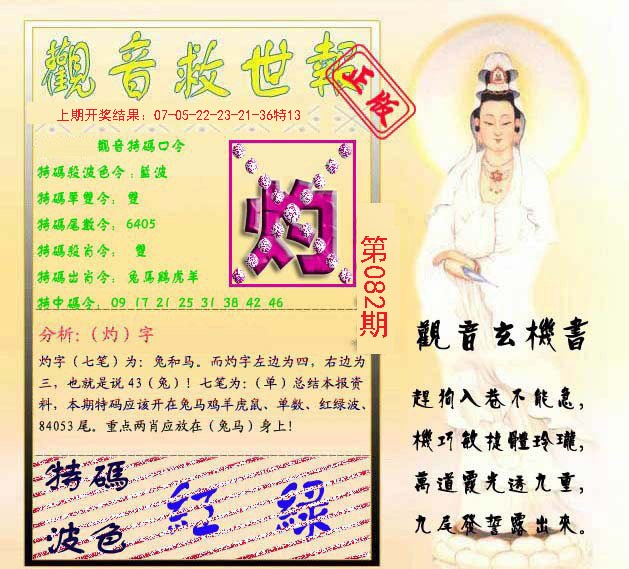 觀音救世報
正版
上期开奖结果：07-05-22-23-21-36特13
觀音特碼口令
特碼殺波色令：藍波
特碼單雙令： 雙
特碼尾數令： 6405
特碼殺肖令： 雙
特碼出肖令： 兔馬鷄虎羊
特中碼令： 09 17 21 25 31 38 42 46
灼
第082期
分析:（灼）字
灼字（七笔）为：兔和马。而灼字左边为四，右边为
三，也就是说 43（兔）！七笔为：（单）总结本报资
料，本期特码应该开在兔马鸡羊虎鼠、单数、红绿波、
84053 尾。重点两肖应放在（兔马）身上！
特碼
波色
紅 綠
觀音玄機書
趕狗入巷不能急，
機巧敏捷體玲瓏，
萬道霞光透九重，
九尾發誓露出來。